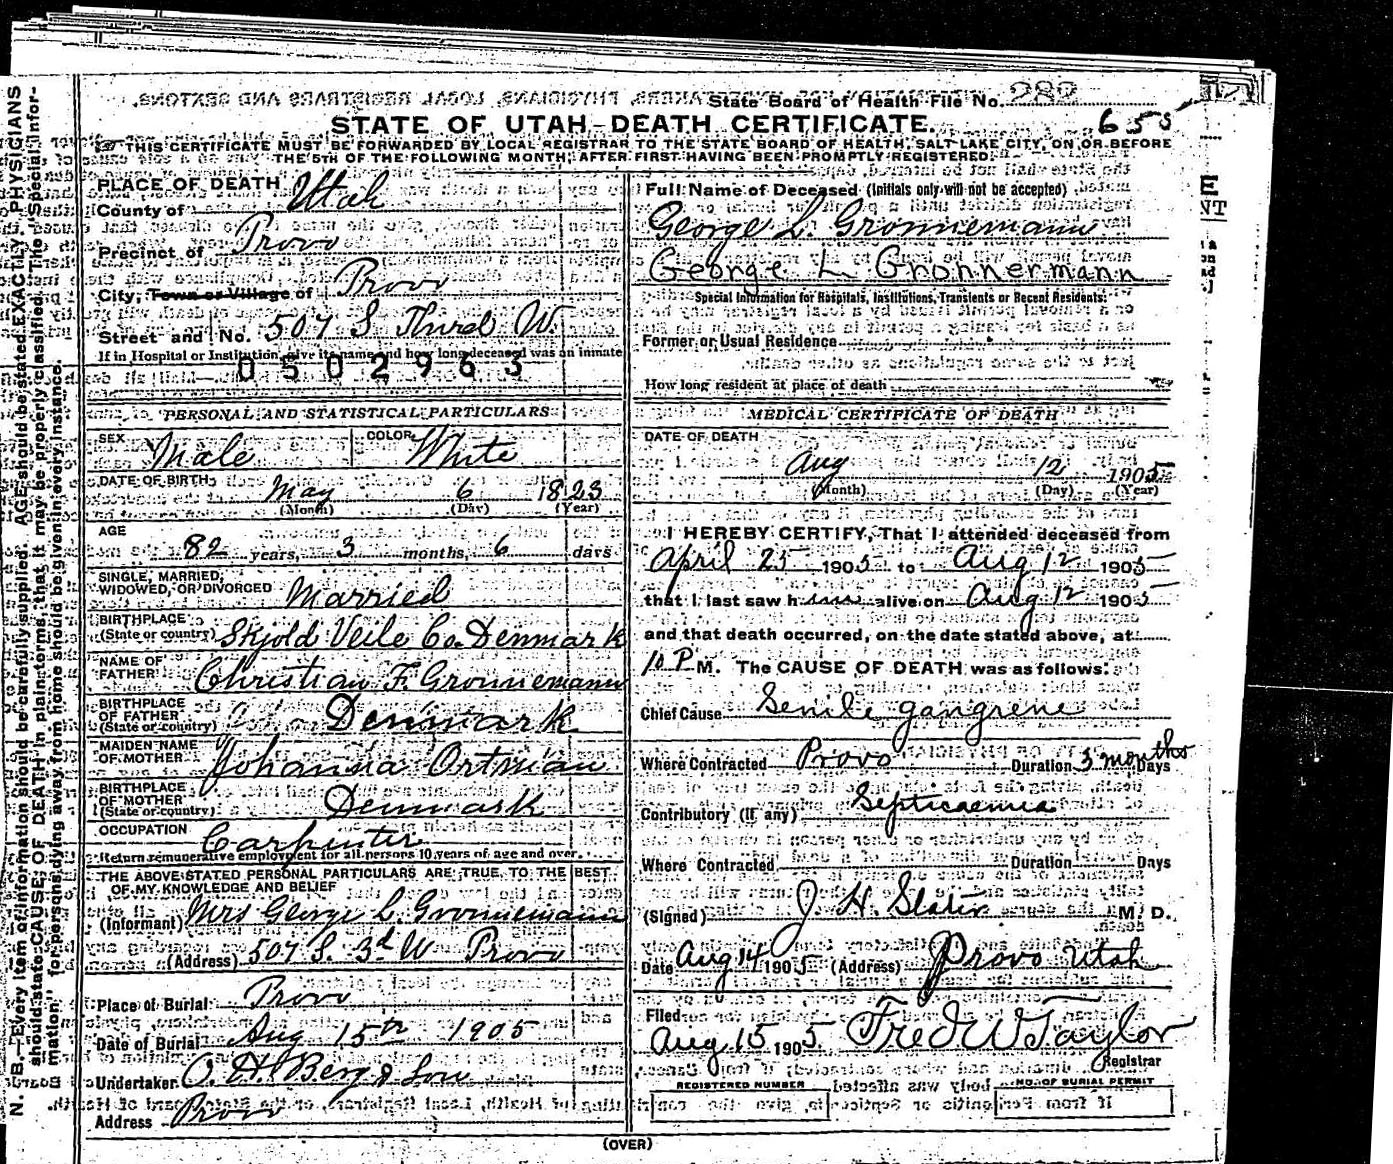 State Board of Health File No. 282
655
STATE OF UTAH-DEATH CERTIFICATE.
THIS CERTIFICATE MUST BE FORWARDED BY LOCAL REGISTRAR TO THE STATE BOARD OF HEALTH, SALT LAKE CITY, ON OR BEFORE
THE 5TH OF THE FOLLOWING MONTH, AFTER FIRST HAVING BEEN PROMPTLY REGISTERED.
PLACE OF DEATH
County of Utah
Precinct of Provo
City, Town or Village of Provo
Street and No. 507 S. Third W.
If in Hospital or Institution, give its name and how long deceased was an inmate
0502963
PERSONAL AND STATISTICAL PARTICULARS
SEX Male COLOR White
DATE OF BIRTH May 6 1823
(Month) (Day) (Year)
AGE
82 years, 3 months, 6 days
SINGLE, MARRIED,
WIDOWED, OR DIVORCED Married
BIRTHPLACE
(State or country) Skjold Veile Co. Denmark
NAME OF
FATHER Christian F. Gronnemann
BIRTHPLACE
OF FATHER
(State or country) Denmark
MAIDEN NAME
OF MOTHER Johanna Ortman
BIRTHPLACE
OF MOTHER
(State or country) Denmark
OCCUPATION Carpenter
Return remunerative employment for all persons 10 years of age and over.
THE ABOVE STATED PERSONAL PARTICULARS ARE TRUE TO THE BEST
OF MY KNOWLEDGE AND BELIEF
(Informant) Mrs George L. Gronnemann
(Address) 507 S. 3d W Provo
Place of Burial Provo
Date of Burial Aug 15th 1905
Undertaker O. H. Berg & Son
Address Provo
Full Name of Deceased (Initials only will not be accepted)
George L. Gronnemann
George L Gronnermann
Special Information for Hospitals, Institutions, Transients or Recent Residents:
Former or Usual Residence
How long resident at place of death
MEDICAL CERTIFICATE OF DEATH
DATE OF DEATH
Aug 12 1905
(Month) (Day) (Year)
I HEREBY CERTIFY, That I attended deceased from
April 25 1905 to Aug 12 1905
that I last saw him alive on Aug 12 1905
and that death occurred, on the date stated above, at
10 P M. The CAUSE OF DEATH was as follows:
Chief Cause Senile gangrene
Where Contracted Provo Duration 3 months Days
Contributory (if any) Septicaemia
Where Contracted Duration Days
(Signed) J. H. Slater M. D.
Date Aug 14 1905 (Address) Provo Utah
Filed
Aug 15 1905 Fred W Taylor
Registrar
REGISTERED NUMBER NO. OF BURIAL PERMIT
(OVER)
N. B.—Every item of information should be carefully supplied. AGE should be stated EXACTLY. PHYSICIANS
should state CAUSE OF DEATH in plain terms, that it may be properly classified. The "Special Infor-
mation" for persons dying away from home should be given in every instance.